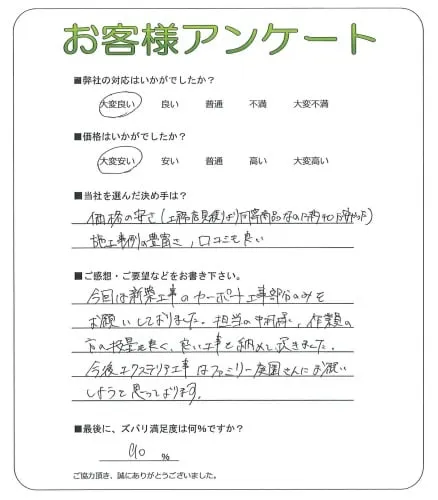 お客様アンケート
■弊社の対応はいかがでしたか?
大変良い 良い 普通 不満 大変不満
■価格はいかがでしたか?
大変安い 安い 普通 高い 大変高い
■当社を選んだ決め手は?
価格の安さ(工務店見積りより同等商品なのに約40万安かった)
施工事例の豊富さ、口コミも良い
■ご感想・ご要望などをお書き下さい。
今回は新築工事のカーポート工事部分のみを
お願いしておりました。担当の中村様、作業員の
方の技量も良く、良い工事を納めて頂きました。
今後エクステリア工事はファミリー庭園さんにお願い
しようと思っております。
■最後に、ズバリ満足度は何%ですか?
90 %
ご協力頂き、誠にありがとうございました。